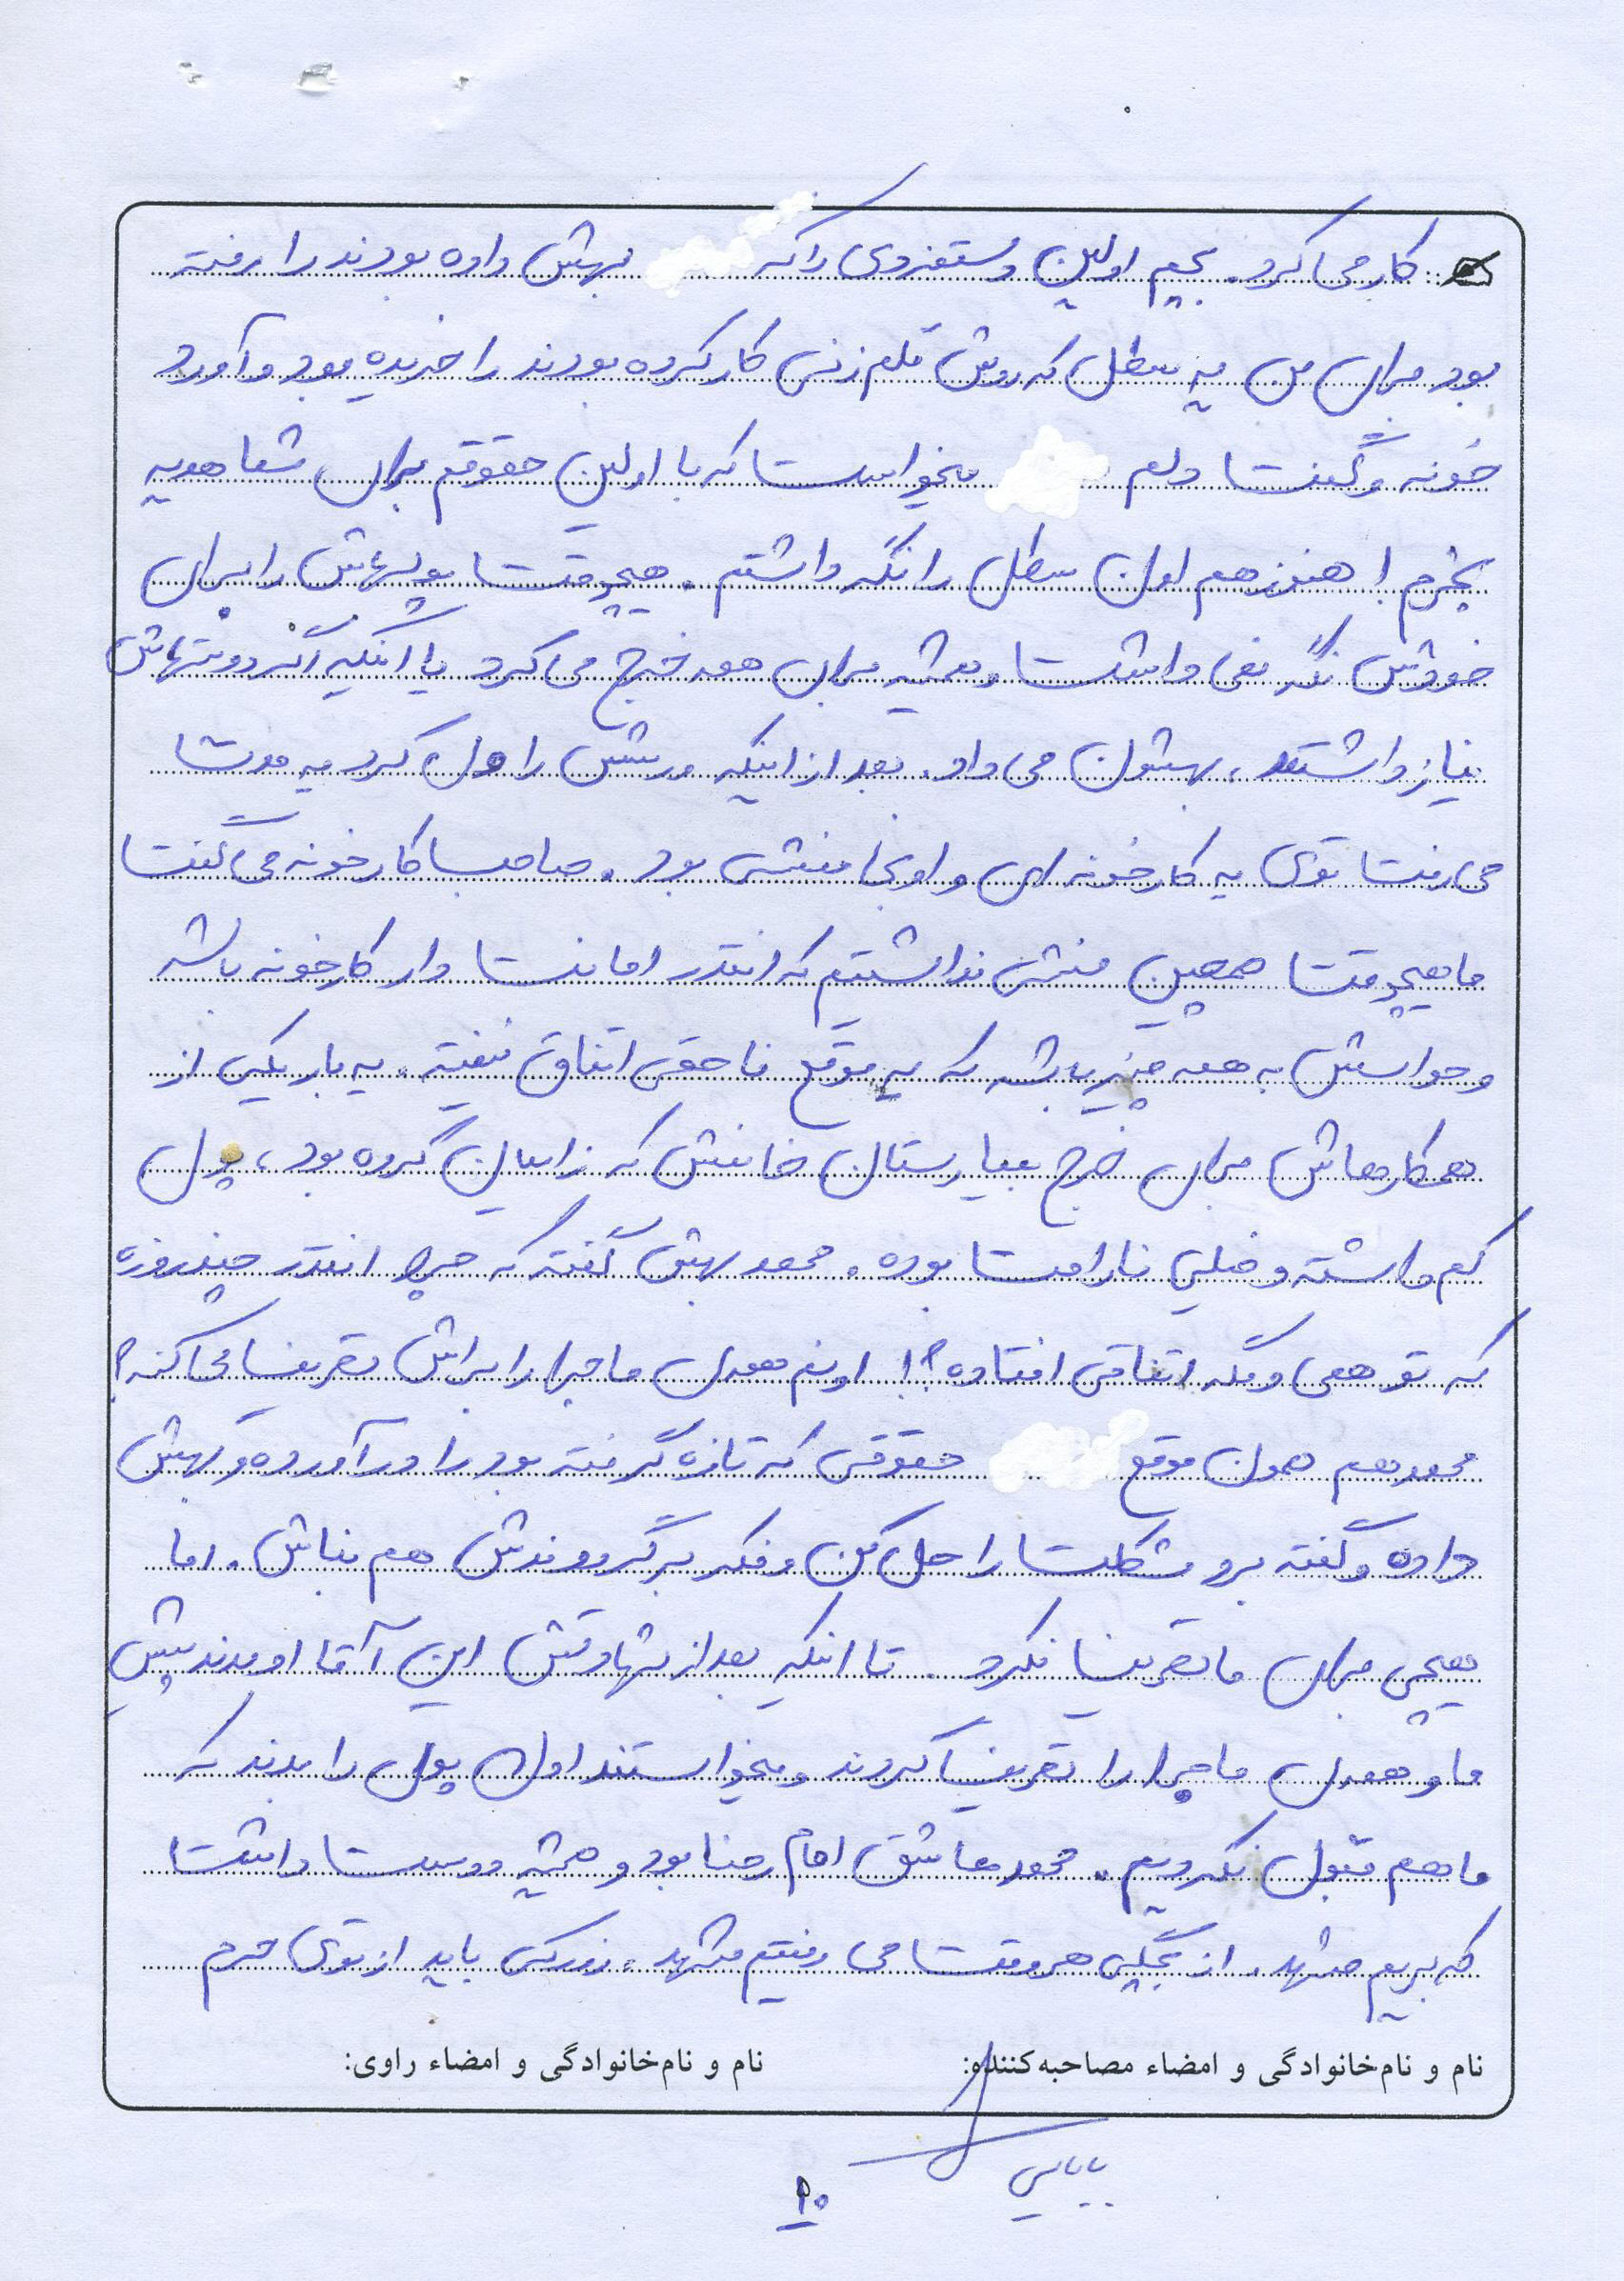 کار می‌کرد. بچم اولین دستمزدی را که بهش داده بودند را رفته
بود برای من یه سطل که روش قلم زنی کار کرده بودند را خریده بود و آورد
خونه و گفت دلم میخواست که با اولین حقوقم برای شما هدیه
بخرم! هنوز هم اون سطل را نگه داشتم. هیچوقت پولهاش را برای
خودش نگه نمی داشت و همیشه برای همه خرج می کرد یا اینکه اگر دوستهاش
نیاز داشتند، بهشون می داد. بعد از اینکه درسش را ول کرد یه مدت
می رفت توی یه کارخونه ای و اونجا منشی بود. صاحب کارخونه می گفت
ما هیچوقت همچین منشی نداشتیم که انقدر امانت دار کارخونه باشه
و حواسش به همه چیز باشه که یه موقع ناحقی اتفاق نیفته. یه بار یکی از
همکارهاش برای خرج بیمارستان خانمش که زایمان کرده بود، پول
کم داشته و خیلی ناراحت بوده. محمد بهش گفته که چرا انقدر چند روزه
که تو همی و مگه اتفاقی افتاده؟! اونم همه‌ی ماجرا را براش تعریف می کنه؟
محمد هم همون موقع حقوقی که تازه گرفته بود را در آورده و بهش
داده و گفته برو مشکلت را حل کن و فکر برگردوندش هم نباش. اما
هیچی برای ما تعریف نکرد. تا اینکه بعد از شهادتش این آقا اومدند پیش
ما و همه‌ی ماجرا را تعریف کردند و میخواستند اون پول را بدند که
ما هم قبول نکردیم. محمد عاشق امام رضا بود و همیشه دوست داشت
که بریم مشهد. از بچگی هر وقت می رفتیم مشهد، زورکی باید از توی حرم
نام و نام‌خانوادگی و امضاء مصاحبه‌کننده:
نام و نام‌خانوادگی و امضاء راوی:
بابایی